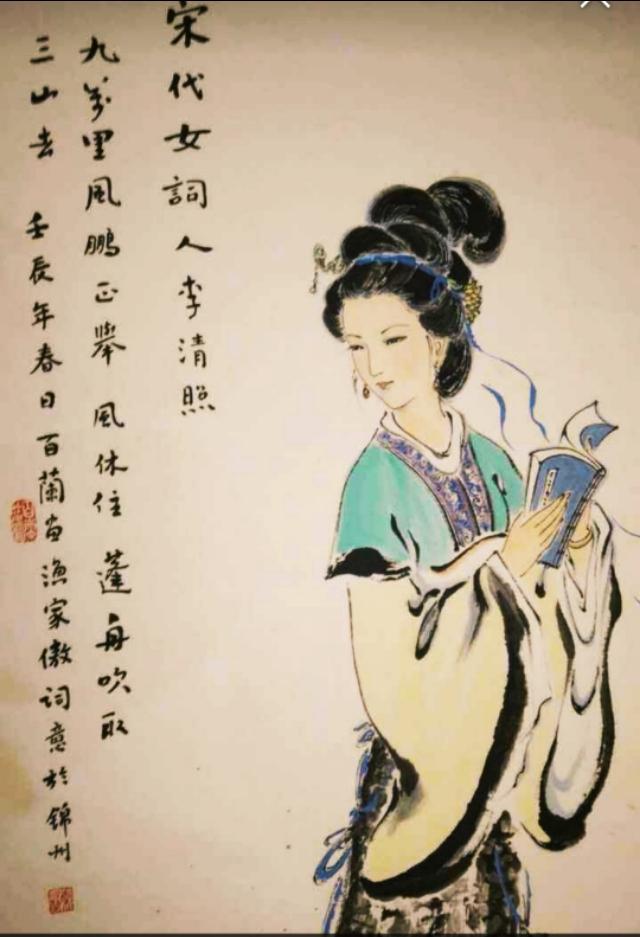 宋代女詞人李清照
九萬里風鵬正舉 風休住 蓬舟吹取
三山去 壬辰年春日百蘭画漁家傲词意於錦州